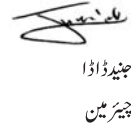 جنید ڈاڈا
چیئرمین